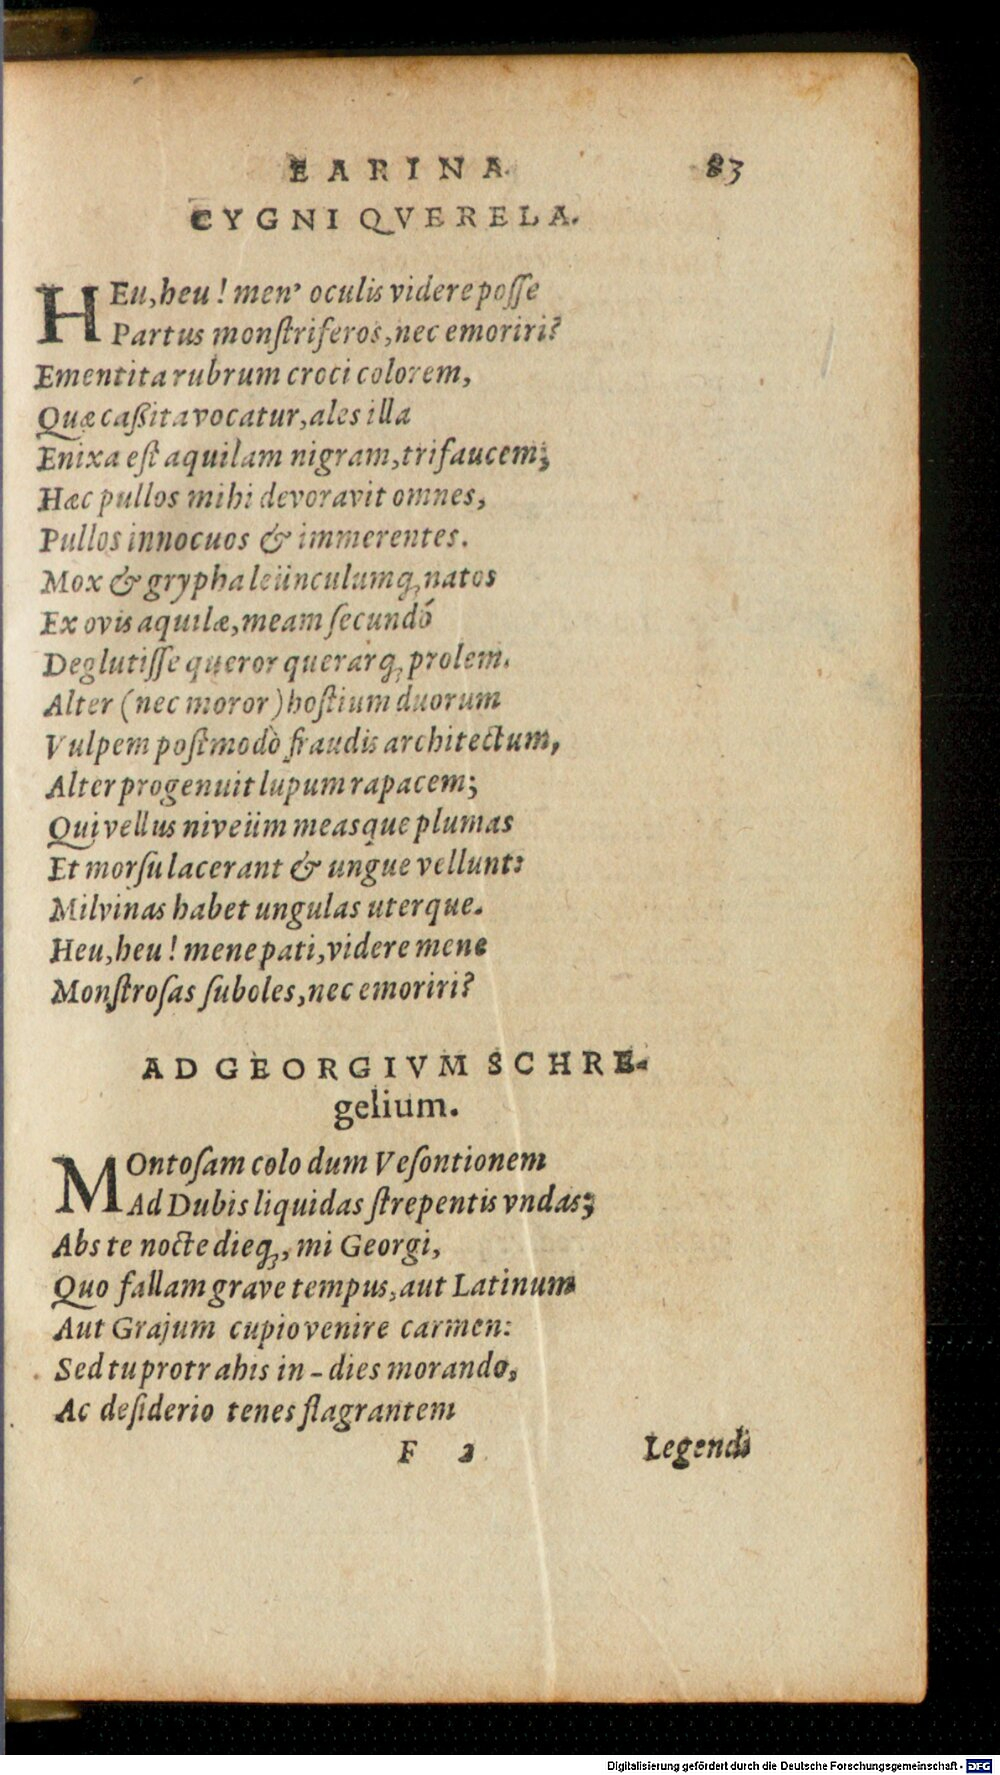 EARINA. 83
CYGNI QVERELA.
HEu, heu! men' oculis videre posse
Partus monstriferos, nec emoriri?
Ementita rubrum croci colorem,
Quæ caßita vocatur, ales illa
Enixa est aquilam nigram, trifaucem;
Hæc pullos mihi devoravit omnes,
Pullos innocuos & immerentes.
Mox & grypha leünculumq́; natos
Ex ovis aquilæ, meam secundó
Deglutisse queror querarq́; prolem.
Alter (nec moror) hostium duorum
Vulpem postmodò fraudis architectum,
Alter progenuit lupum rapacem;
Qui vellus niveüm measque plumas
Et morsu lacerant & ungue vellunt:
Milvinas habet ungulas uterque.
Heu, heu! mene pati, videre mene
Monstrosas suboles, nec emoriri?
AD GEORGIVM SCHRE-
gelium.
MOntosam colo dum Vesontionem
Ad Dubis liquidas strepentis vndas;
Abs te nocte dieq́;, mi Georgi,
Quo fallam grave tempus, aut Latinum
Aut Grajum cupio venire carmen:
Sed tu protrahis in-dies morando,
Ac desiderio tenes flagrantem
F 2 Legendi
Digitalisierung gefördert durch die Deutsche Forschungsgemeinschaft - DFG